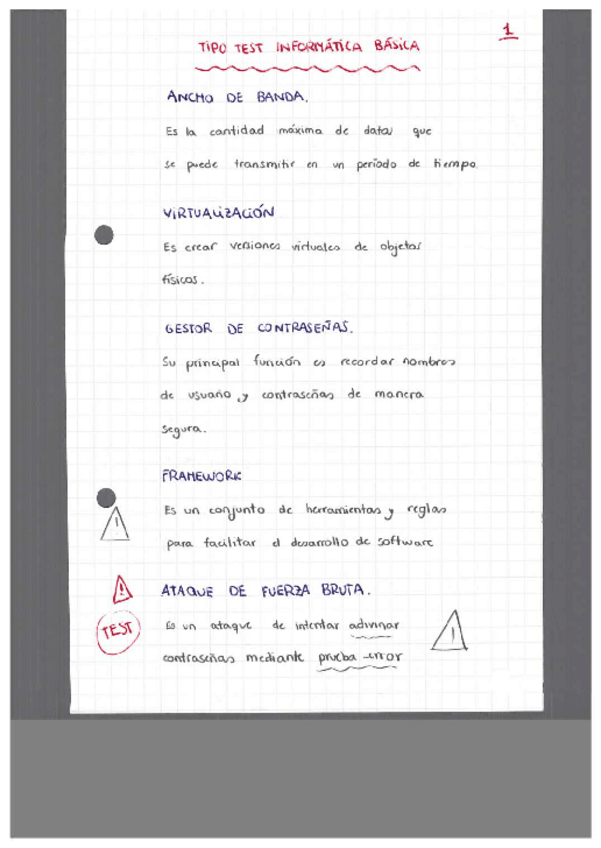 1
TIPO TEST INFORMÁTICA BÁSICA
ANCHO DE BANDA.
Es la cantidad máxima de datos que
se puede transmitir en un período de tiempo.
VIRTUALIZACIÓN
Es crear versiones virtuales de objetos
físicos.
GESTOR DE CONTRASEÑAS.
Su principal función es recordar nombres
de usuario y contraseñas de manera
segura.
FRAMEWORK
Es un conjunto de herramientas y reglas
para facilitar el desarrollo de software
ATAQUE DE FUERZA BRUTA.
TEST
Es un ataque de intentar advinar
contraseñas mediante prueba-error